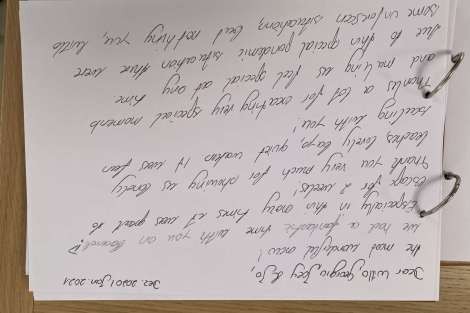 Dec. 2020/Jan. 2021
Dear Willo, Georgia, Joey & Jo,
the most wonderful crew!
We had a fantastic time with you on board!
Especially in this crazy times it was great to
escape for 2 weeks!
Thank you very much for showing us lonely
beaches, lovely bays, quiet It was fun
sailing with you!
Thanks a lot for creating very special moments
and making us feel special at any time
Due to this special pandemic situation there were
some unforseen situations, but nothing you, Willo